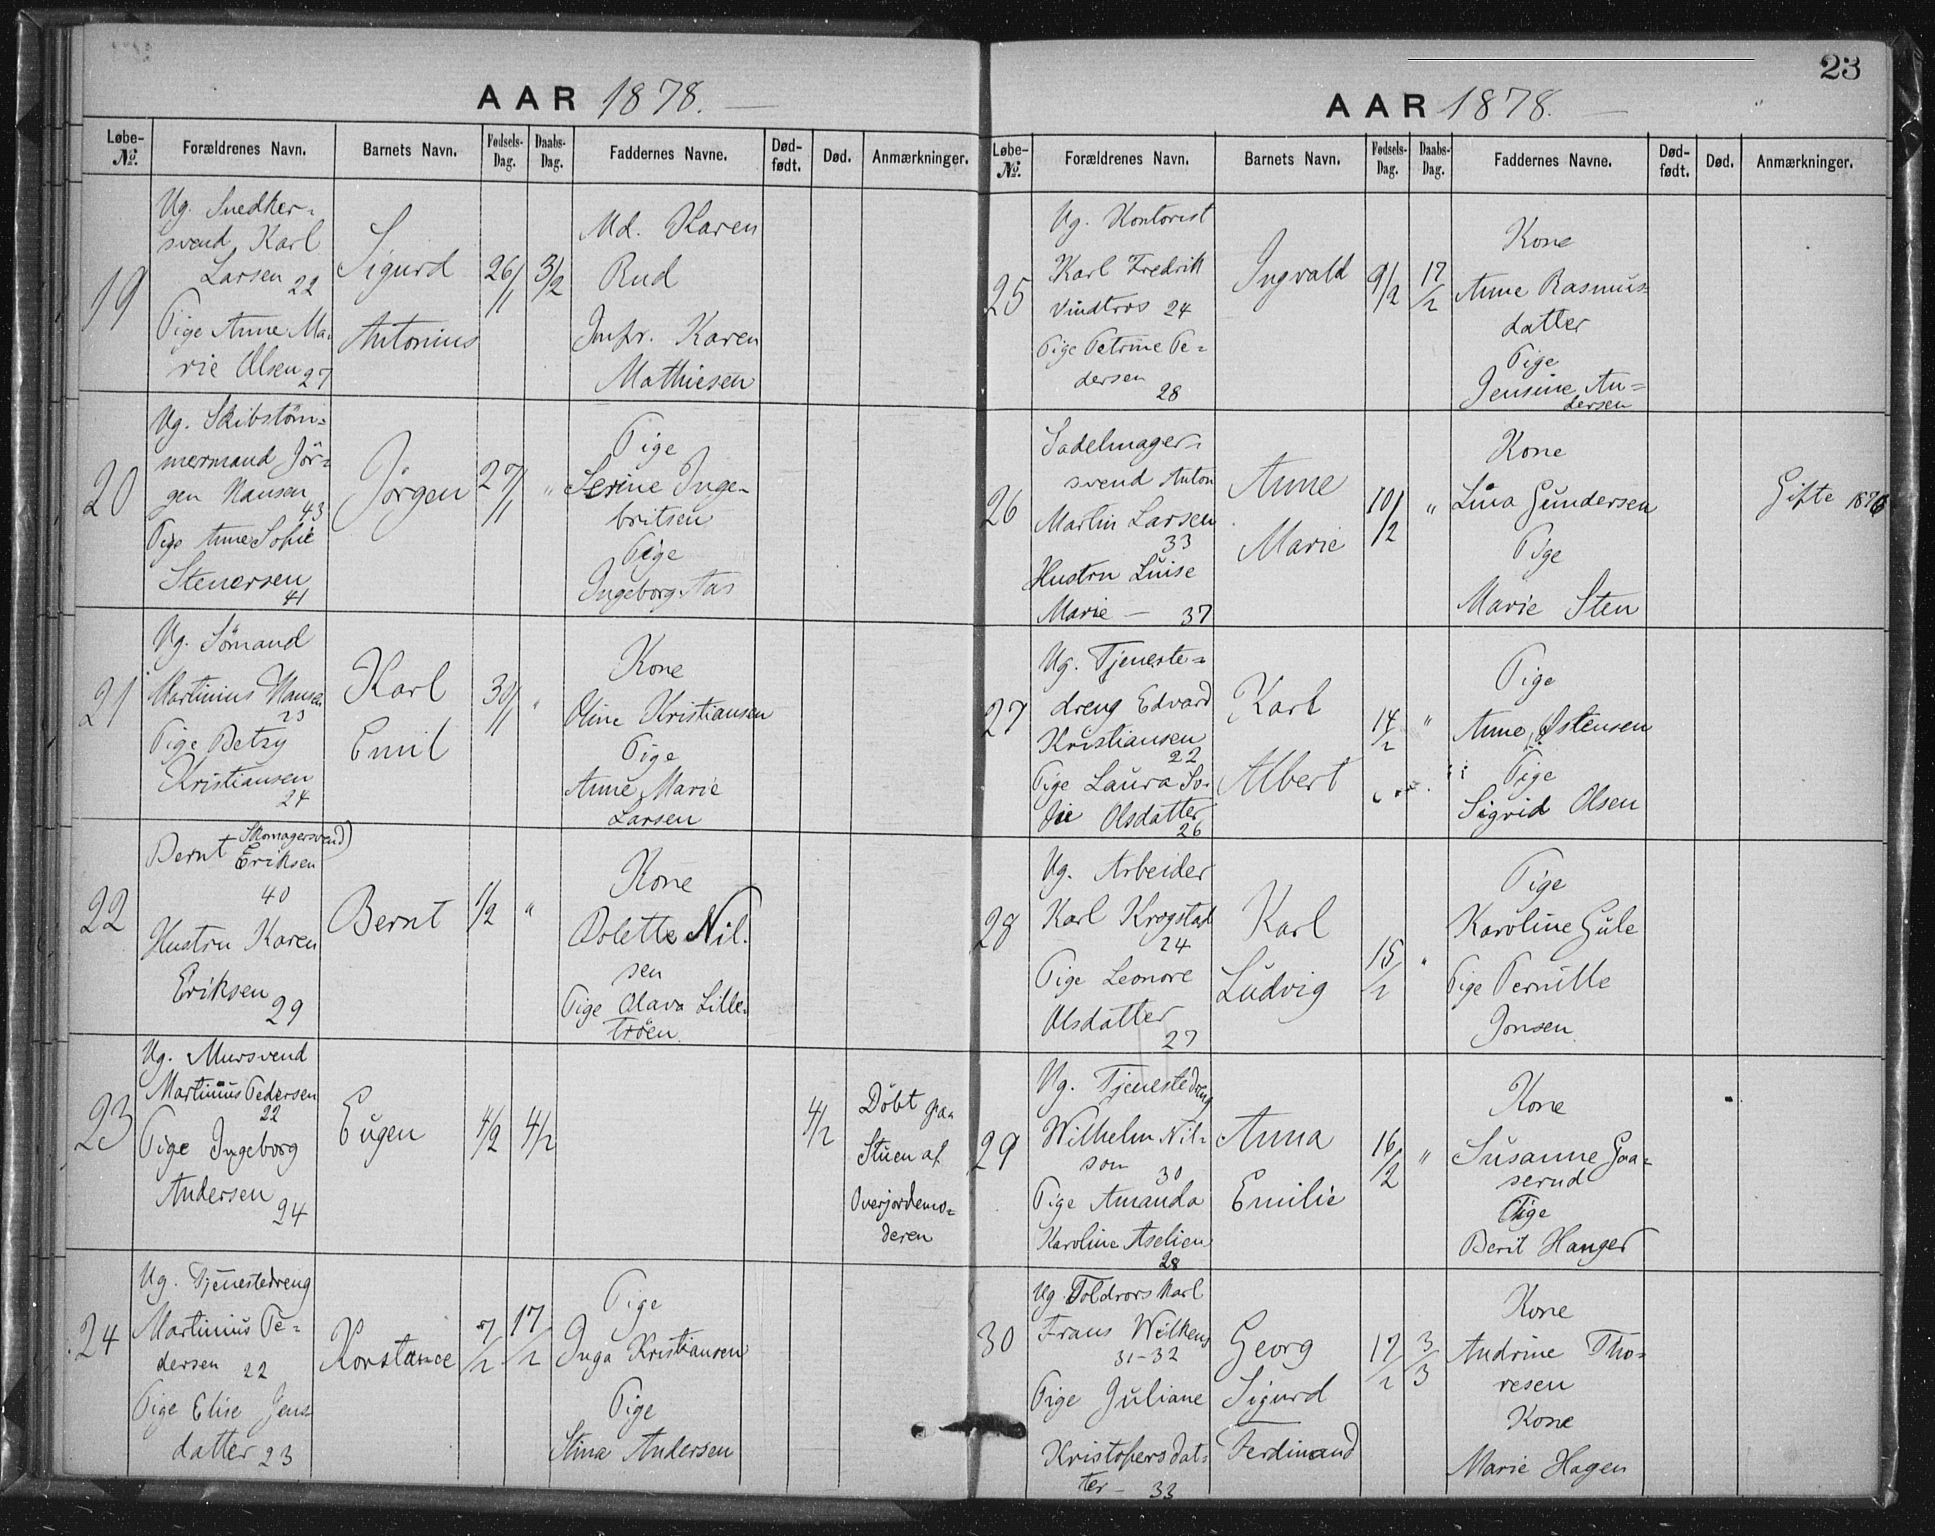 AAR 1878.
Løbe-№. Forældrenes Navn. Barnets Navn. Fødsels-Dag. Daabs-Dag. Faddernes Navne. Død-født. Død. Anmærkninger.
19
Ug. Snedker-
svend Karl
Larsen 22
Pige Anne Ma-
rie Olsen 27
Sigurd
Antonius
26/1
3/2
Md. Karen
Rud
Jmfr. Karen
Mathiesen
20
Ug. Skibstöm-
mermand Jör-
gen Hansen
43
Pige Anne Sofie
Stenersen
41
Jörgen
27/1
"
Pige
Serine Inge-
britsen
Pige
Ingeborg Aas
21
Ug. Sömand
Martinius Hansen
23
Pige Betzy
Kristiansen
24
Karl
Emil
30/1
"
Kone
Oline Kristiansen
Pige
Anne Marie
Larsen
22
Skomagersvend)
Bernt Eriksen
40
Hustru Karen
Eriksen
29
Bernt
1/2
"
Kone
Dolette Nil-
sen
Pige Olava Lille-
tröen.
23
Ug. Mursvend
Martinius Pedersen
22
Pige Ingeborg
Andersen
24
Eugen
4/2
4/2
4/2
Döbt paa
Stuen af
Overjordemo-
deren
24
Ug. Tjenestedreng
Martinius Pe-
dersen 22
Pige Elise Jens
datter 23
Konstance
7/2
17/2
Pige
Inga Kristiansen
Pige
Stina Andersen
23
AAR 1878.
Løbe-№. Forældrenes Navn. Barnets Navn. Fødsels-Dag. Daabs-Dag. Faddernes Navne. Død-født. Død. Anmærkninger.
25
Ug. Kontorist
Karl Fredrik
24
Pige Petrine Pe-
dersen
28
Ingvald
9/2
17/2
Kone
Anne Rasmus-
datter
Pige
Jensine An-
dersen
26
Sadelmager-
svend Anton
Martin Larsen
33
Hustru Luise
Marie — 37
Anne
Marie
10/2
"
Kone
Lina Gundersen
Pige
Marie Sten
Gifte 1876
27
Ug. Tjeneste-
dreng Edvard
Kristiansen
22
Pige Laura So-
fie Olsdatter
26
Karl
Albert
14/2
"
Pige
Anne Østensen
Pige
Sigrid Olsen
28
Ug. Arbeider
Karl Krogstad
24
Pige Leonore
Olsdatter
27
Karl
Ludvig
15/2
"
Pige
Karoline Gule
Pige Pernille
Jonsen.
29
Ug. Tjenestedreng
Wilhelm Nil-
son
30
Pige Amanda
Karoline Aselien
28
Anna
Emilie
16/2
"
Kone
Susanne Gaa-
serud
Pige
Berit Hanger
30
Ug. Toldrors Karl
Frans Wilkens
31-32
Pige Juliane
Kristofersdat-
ter — 33
Georg
Sigurd
Ferdinand
17/2
3/3
Kone
Andrine Tho-
resen
Kone
Marie Hagen